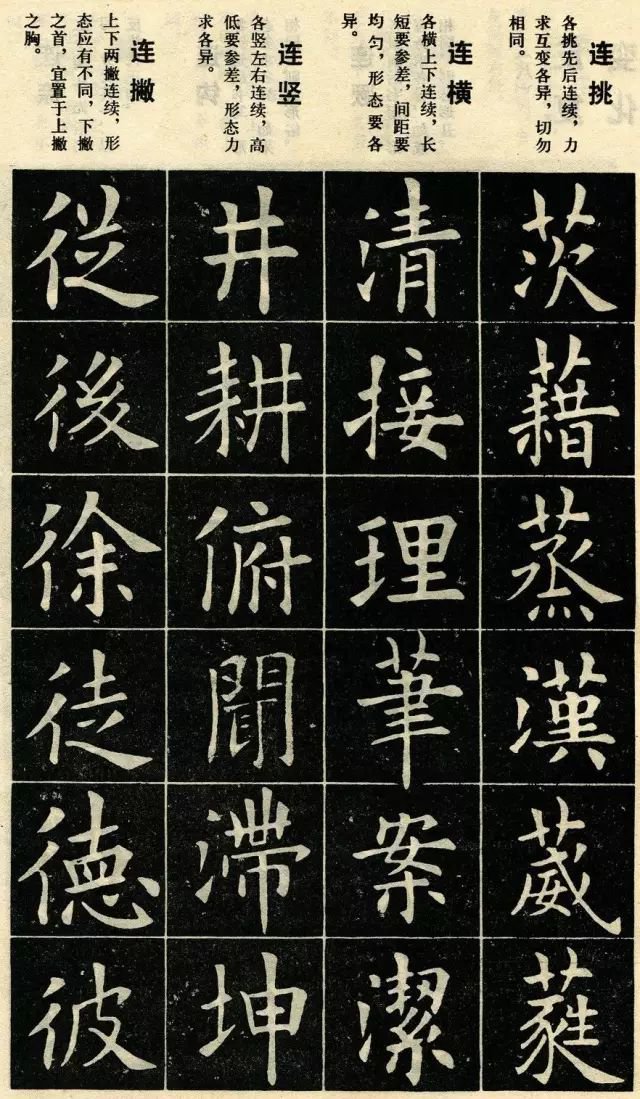 连挑
各挑先后连续，力
求互变各异，切勿
相同。
茨藉蒸漢葳蕤
连横
各横上下连续，长
短要参差，间距要
均匀，形态要各
异。
清接理筆案潔
连竖
各竖左右连续，高
低要参差，形态力
求各异。
井耕俯聞滯坤
连撇
上下两撇连续，形
态应有不同，下撇
之首，宜置于上撇
之胸。
従後徐徒徳彼